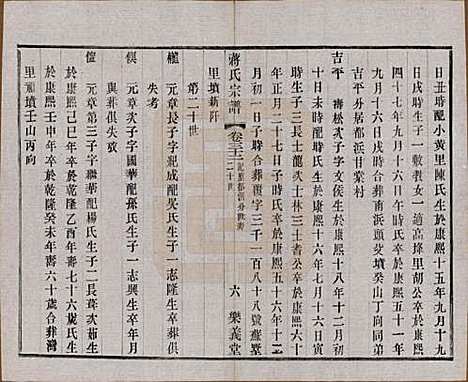 日丑時配小黃里陳氏生於康熙十五年九月十九
日戌時生子一敷教女一適高墩里胡公卒於康熙
四十七年九月十六日午時陳氏卒於康熙五十一年
九月十六日戌時合葬南浜頭艾墳癸山丁向同弟
吉平外居都浜甘棠村
吉平 壽松次子字文侯生於康熙十八年十二月初
十日未時配時氏生於康熙十六年七月十六日
時生子三長士龍次士林三士耆公卒於康熙六十
年正月二十七日子時氏卒於康熙五十六年十二
月初一日子時合葬覆字三千一百八十八號蘇墅
蔣氏宗譜
卷三十二
二十世
六 樂義堂
里墳新阡
第二十世
權 元章長子字紀成配吳氏生子一志隆生卒葬俱
失考
俱 元章次子字國華配孫氏生子一志興生卒年月
與葬俱失考
愷 元章三子字繼華配楊氏生子二長聳次茹生
於康熙己巳年卒於乾隆乙酉年壽七十六歲氏生
於康熙癸未年卒於乾隆癸未年壽六十歲合葬灣
里頭墳壬山丙向